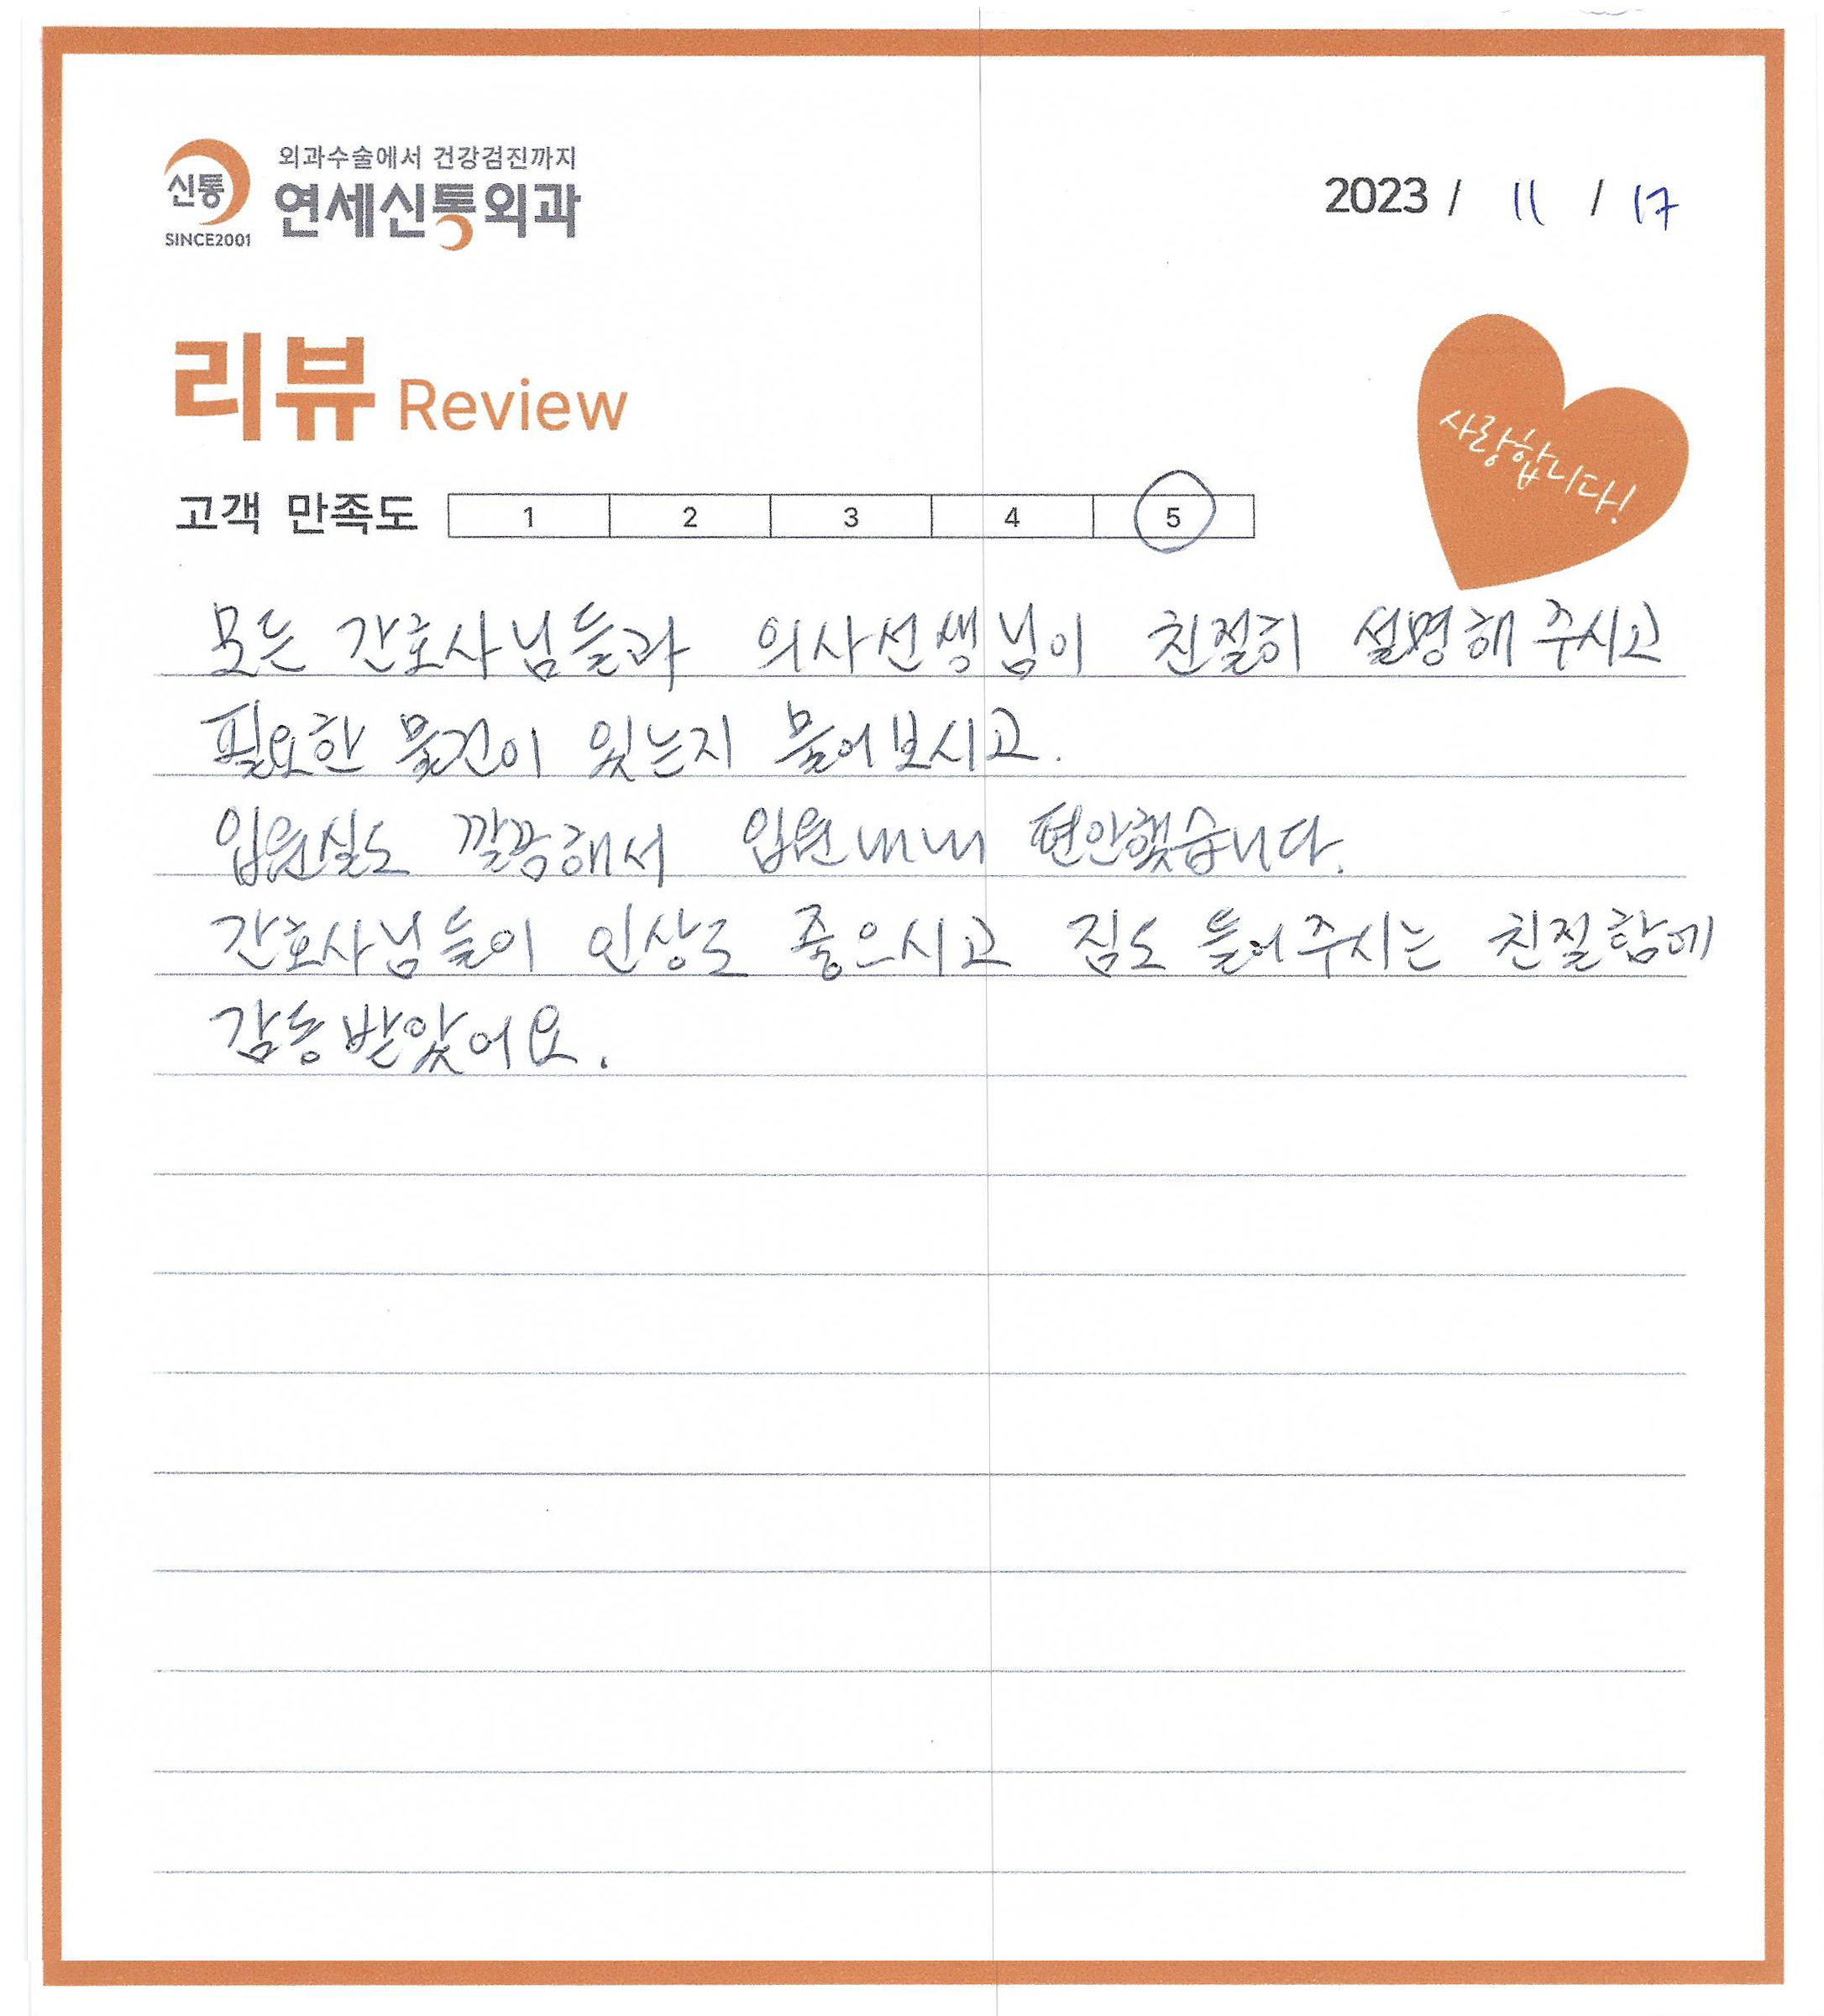 신통
SINCE2001
외과수술에서 건강검진까지
연세신통외과
2023 / 11 / 17
리뷰 Review
사랑합니다!
고객 만족도 1 2 3 4 5
모든 간호사님들과 의사선생님이 친절히 설명해 주시고
필요한 물건이 있는지 물어보시고.
입원실도 깔끔해서 입원내내 편안했습니다.
간호사님들이 인상도 좋으시고 짐도 들어주시는 친절함에
감동받았어요.